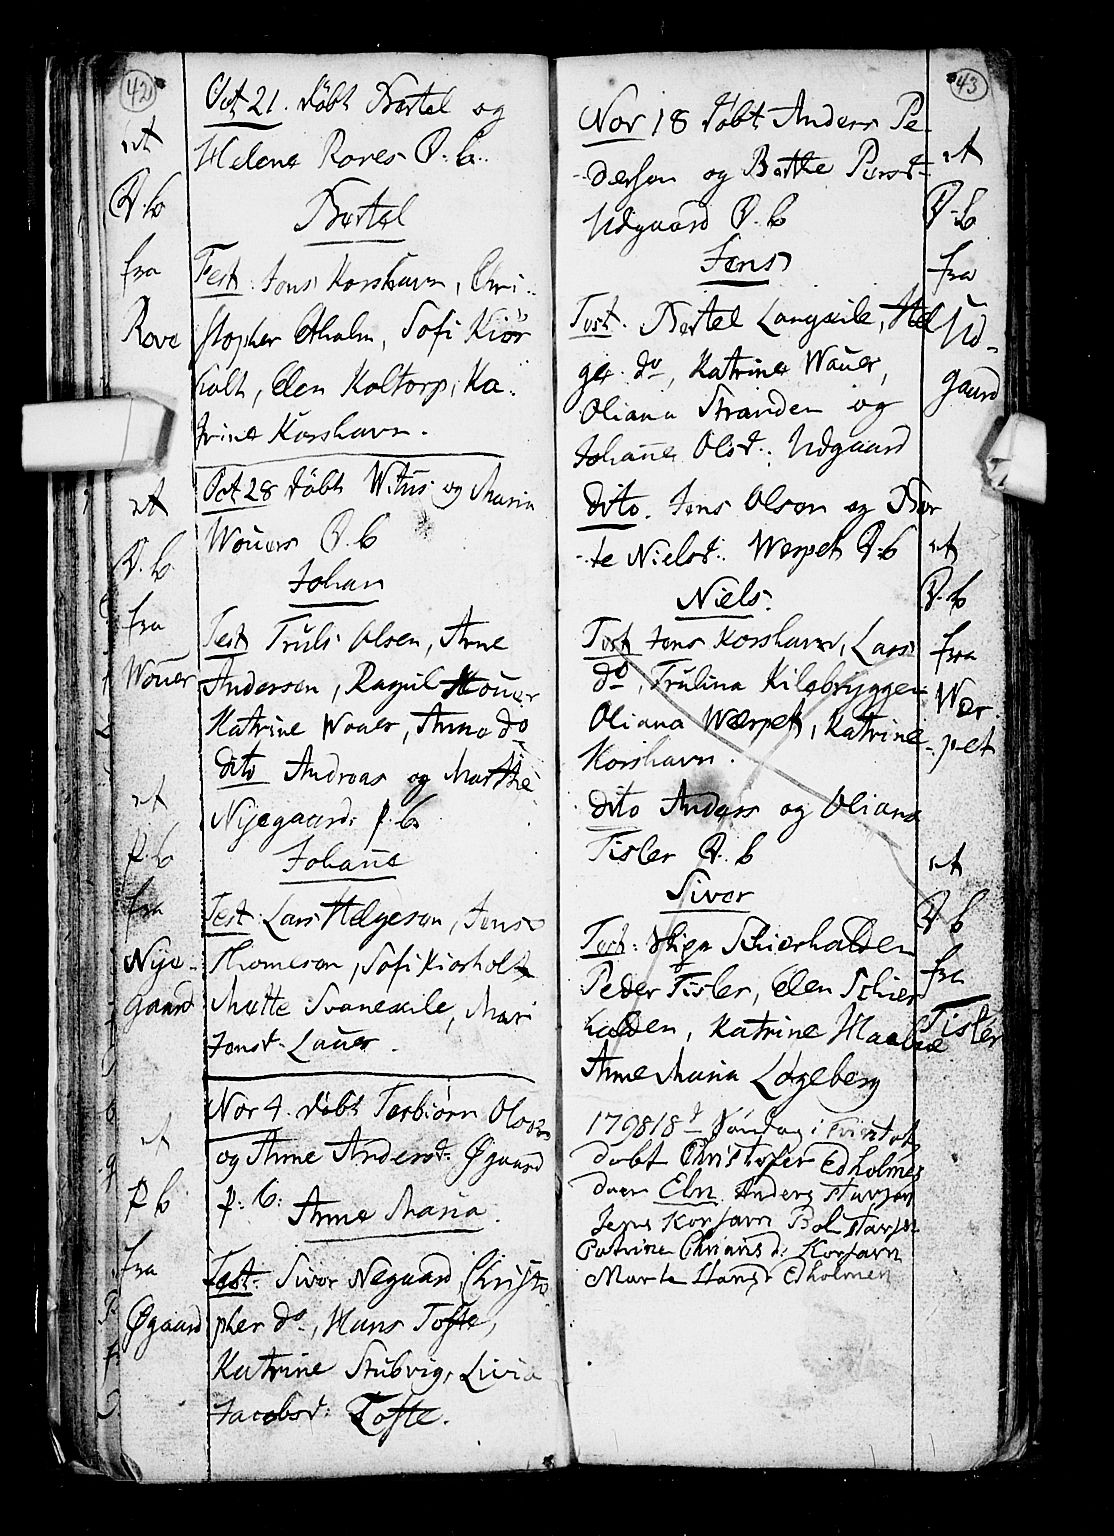 42
Oct 21. döbt Bertel og
Helene Roves P. b.
Bertel
Test: Jens Korshavn, Chri-
stopher Ehholm, Sofi Kiør
holt, Elen Koltorp, Ka-
trine Korshavn.
et
P. b
fra
Rove
Oct 28 döbt Witus og Maria
Wouers P. b
Johan
Test Truls Olsen, Arne
Andersen, Ragnil Houer
Katrine Wouer, Anne do
et
P. b.
fra
Wouer
dito Andreas og Marthe
Nijegaard: p. b.
Johane
Test: Lars Helgeson, Jens
Thomeson, Sofi Kiorholt
Mætte Svanexile, Mari
Jonsd. Lauer.
et
p. b
fra
Nije-
gaard
Nov 4. döbt Torbiörn Olsen
og Anne Andersd: Øgaard
p. b.
Anne Maria.
Test: Sivor Negaard, Christo
pher do, Hans Tofte,
Katrine Stubvig, Livia
Jacobsd: Tofte.
et
p b
fra
Øgaard
43
Nov 18 döbt Anders Pe-
dersen og Berthe Persd-
Udgaard P. b
Jens
Test. Bertel Langexile, Hel
ge do, Katrine Wauer,
Oliana Stranden og
Johane Olsd. Udgaard
et
P. b
fra
Ud-
gaard
dito. Jens Olsen og Ber
te Nielsd. Wærpet P. b
Niels.
Test Jens Korshavn, Lars
do, Trulina Kilebryggen
Oliana Wærpet, Katrine
Korshavn.
et
P. b
fra
Wær
-pet
dito Anders og Oliana
Tisler P. b
Sivor
Test: Schierhalden
Peder Tisler, Elen Schier
halden, Katrine
Anne Maria Løgeberg
et
P b
fra
Tisler
1798 18d Søndag i
döbt Christofer Edholmes
Elen Anders
Jens Korsavn
Chrians d: Korsavn
Marte Hansd Edholmen